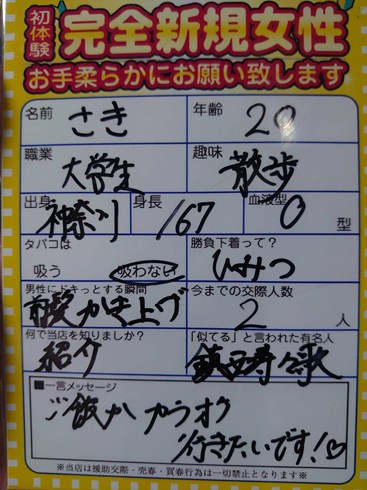 初体験 完全新規女性
お手柔らかにお願い致します
名前 さき 年齢 20
職業 大学生 趣味 散歩
出身 神奈川 身長 167 血液型 O 型
タバコは 勝負下着って？
吸う 吸わない ひみつ
男性にドキっとする瞬間 今までの交際人数
髪かき上げ 2 人
何で当店を知りましたか？ 「似てる」と言われた有名人
紹介
■一言メッセージ
ご飯かカラオケ
行きたいです！♡
※当店は援助交際・売春・買春行為は一切禁止となります※